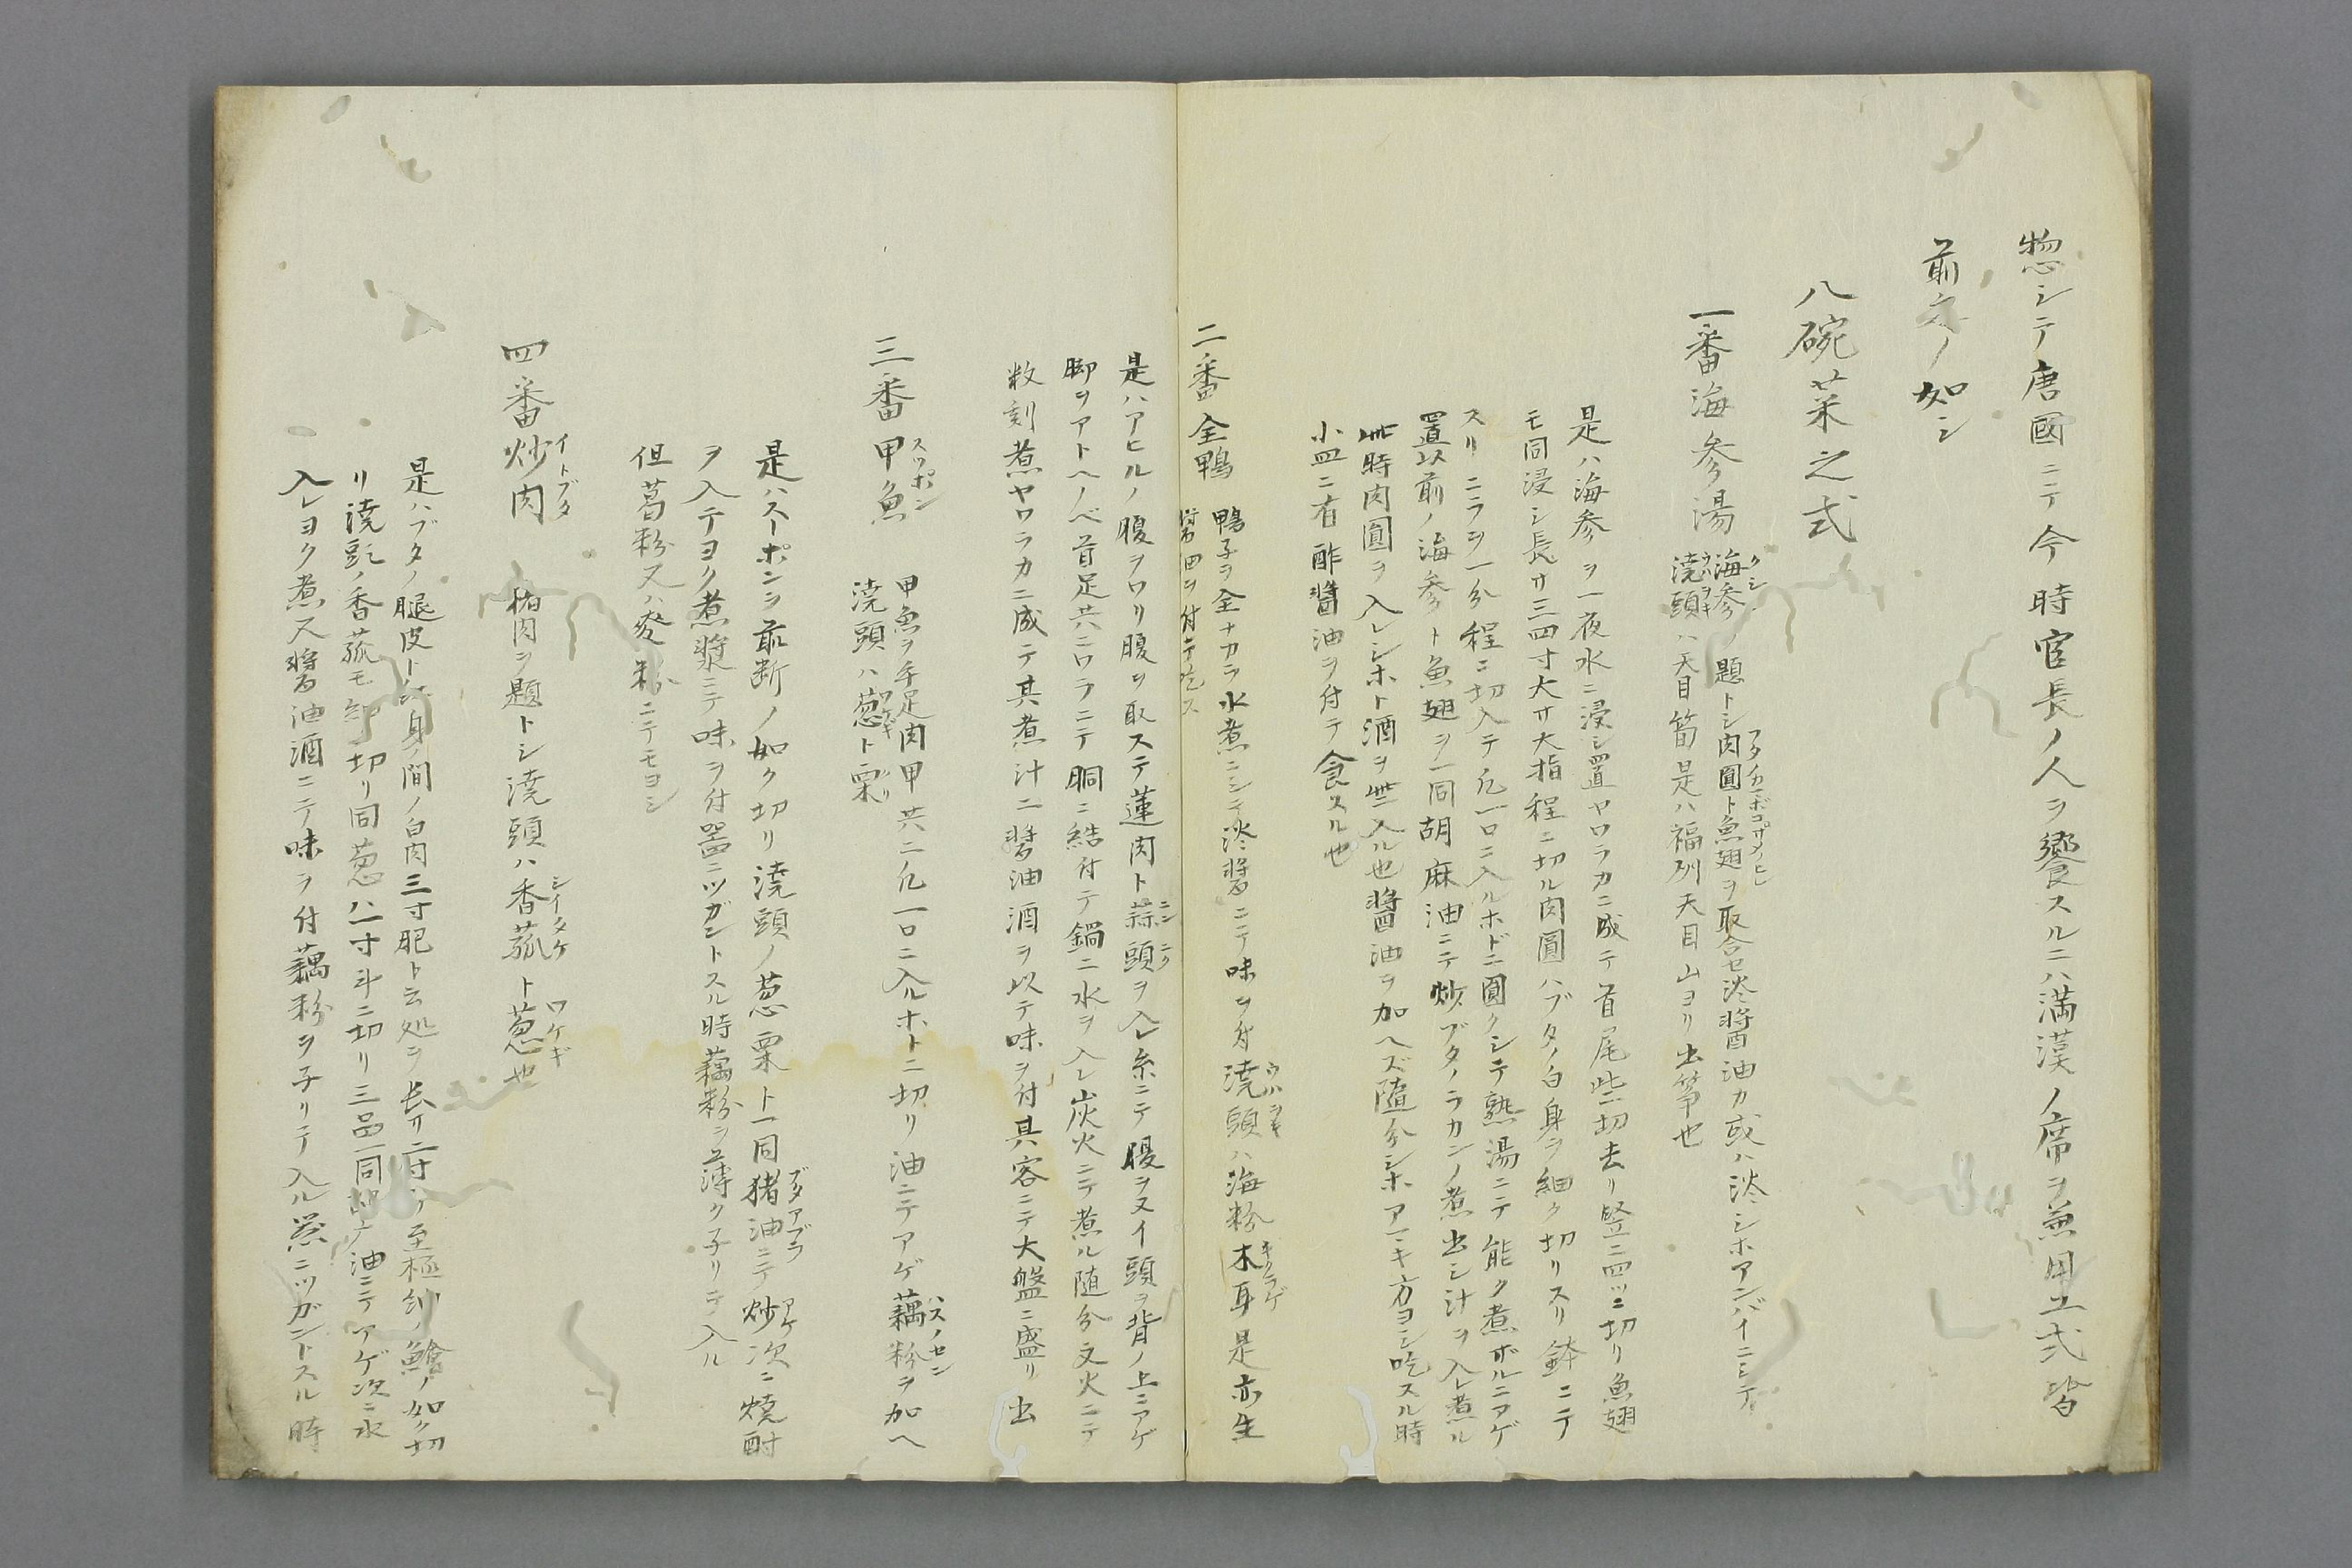 惣シテ唐國ニテ今時官長ノ人ヲ饗スルニハ満漢ノ席ヲ兼用ユ式皆
前文ノ如シ
八碗菜之式
一番海参湯
海参ノ題トシ肉圓ト魚翅ヲ取合セ淡醤油カ或ハ淡シホアンバイニシテ
澆頭ハ天目筍是ハ福州天目山ヨリ出筝也
是ハ海参ヲ一夜水ニ浸シ置ヤワラカニ成テ首尾些切去リ竪ニ四ツニ切リ魚翅
モ同浸シ長サ三四寸大サ大指程ニ切ル肉圓ハブタノ白身ヲ細ク切リスリ鉢ニテ
スリニラヲ一分程ニ切入テ凡一口ニ入ルホドニ圓クシテ熟湯ニテ能ク煮ザルニアゲ
置以前ノ海参ト魚翅ヲ一同胡麻油ニテ炒ブタノラカンノ煮出シ汁ヲ入レ煮ル
此時肉圓ヲ入レシホト酒ヲ些入ル也醤油ヲ加ヘズ隨分シホアマキ方ヨシ吃スル時
小皿ニ有酢醤油ヲ付テ食スル也
二番全鴨
鴨子ヲ全ナカラ水煮ニシテ淡醤ニテ味ヲ付澆頭ハ海粉木耳是亦生
醤油ヲ付テ吃ス
是ハアヒルノ腹ヲワリ腹ワ取ステ蓮肉ト蒜頭ヲ入レ糸ニテ腹ヲヌイ頭ヲ背ノ上ニアゲ
脚ヲアトヘノベ首足共ニワラニテ胴ニ結付テ鍋ニ水ヲ入レ炭火ニテ煮ル随分文火ニテ
数刻煮ヤワラカニ成テ其煮汁ニ醤油酒ヲ以テ味ヲ付其客ニテ大盤ニ盛リ出
三番甲魚
スッポン
甲魚ヲ手足肉甲共ニ凡一口ニ入ルホトニ切リ油ニテアゲ藕粉ヲ加ヘ
ハスノセン
澆頭ハ葱ト栗
是ハスーポンヲ前断ノ如ク切リ澆頭ノ葱栗ト一同猪油ニテ炒次ニ焼酎
ブタアブラ
アケ
ヲ入テヨク煮漿ニテ味ヲ付器ニツガントスル時藕粉ヲ薄ク子リテ入ル
但葛粉又ハ麥粉ニテモヨシ
四番炒肉
イトブタ
猪肉ヲ題トシ澆頭ハ香菰ト葱也
シイタケ
ワケギ
是ハブタノ腿皮ト身ノ間ノ白肉三寸肥ト云処ヲ長サ二寸ヅヽ至極細ク鱠ノ如ク切
リ澆頭ノ香菰モ細ク切リ同葱ハ一寸斗ニ切リ三品一同油ニテアゲ次ニ水
入レヨク煮又醤油酒ニテ味ヲ付藕粉ヲ子リテ入ル器ニツガントスル時